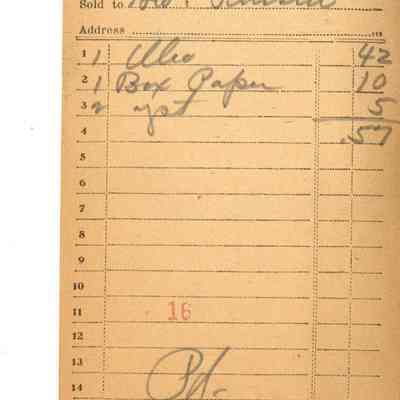 Sold to
Address
1 1 Oleo 42
2 1 Box Paper 10
3 2 5
4 .57
5
6
7
8
9
10
11 16
12
13
14